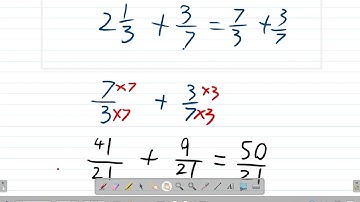 2 1/3 + 3/7 = 7/3 + 3/7
7×7/3×7 + 3×3/7×3
41/21 + 9/21 = 50/21